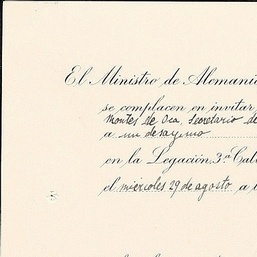 El Ministro de Alemania
se complacen en invitar
Montes de Oca, Secretario de
a un desayuno
en la Legación, 3ª Call
el miércoles 29 de agosto a l